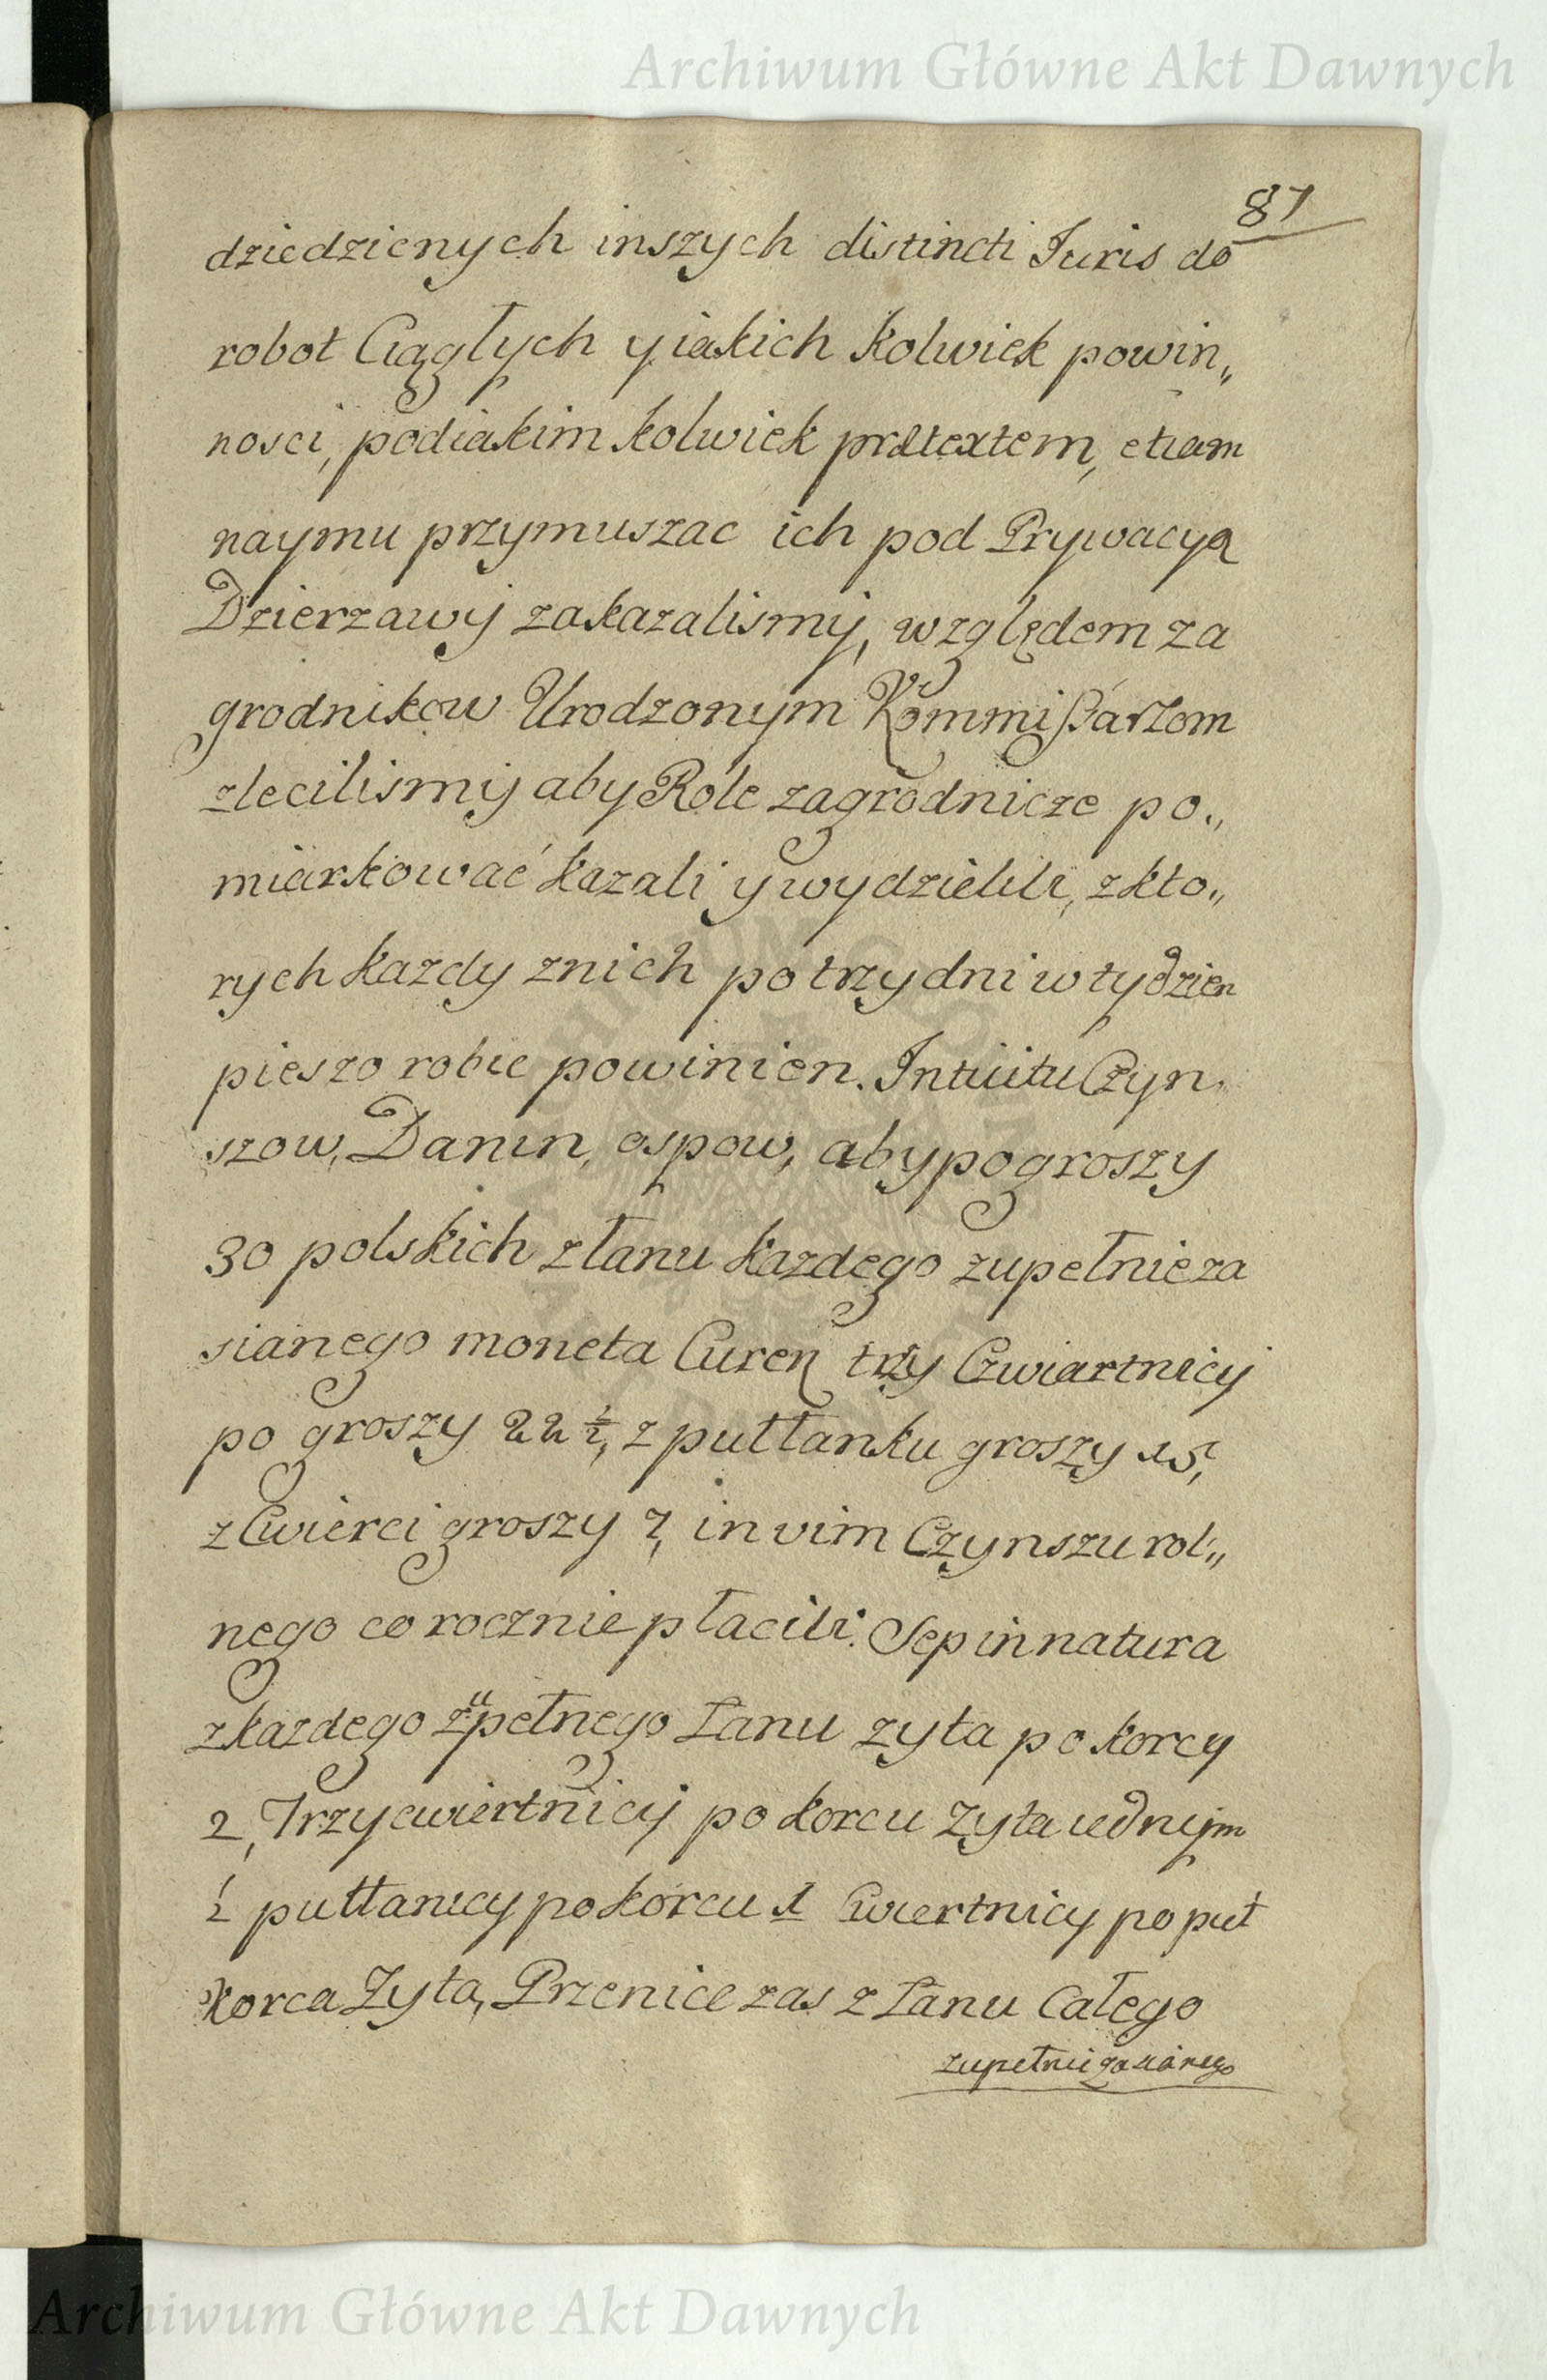 Archiwum Główne Akt Dawnych
81
dziedzicnych inszych distincti Iuris do
robot Ciągłych y iakich kolwiek powin„
nosci, podiakim kolwiek prætextem, etiam
naymu przymuszac ich pod Prywacyą
Dzierzawÿ zakazalismÿ, względem za
grodnikow Urodzonym Kommißarzom
zlecilismÿ aby Role zagrodnicze po„
miarkować kazali y wydzielili, zkto„
rych kazdy znich po trzy dni w tydzien
pieszo robic powinien. Intuitu Czyn„
szow, Danin, ospow, aby po groszy
30 polskich złanu kazdego zupełnie za
sianego moneta Curen trzy Czwiartnicÿ
po groszy 22 1/2, z pułłanku groszy 15,
z Cwierci groszy 7, in vim Czynszu rol„
nego co rocznie płacili. Sep in natura
zkazdego zupełnego Łanu zyta po korcy
2, Trzycwiertnicÿ po korcu Zyta iednÿm
1/2 pułłanicy po korcu 1 Cwiertnicy po puł
korca Zyta, Przenice zas z Łanu Całego
zupełnie zasianego
Archiwum Główne Akt Dawnych